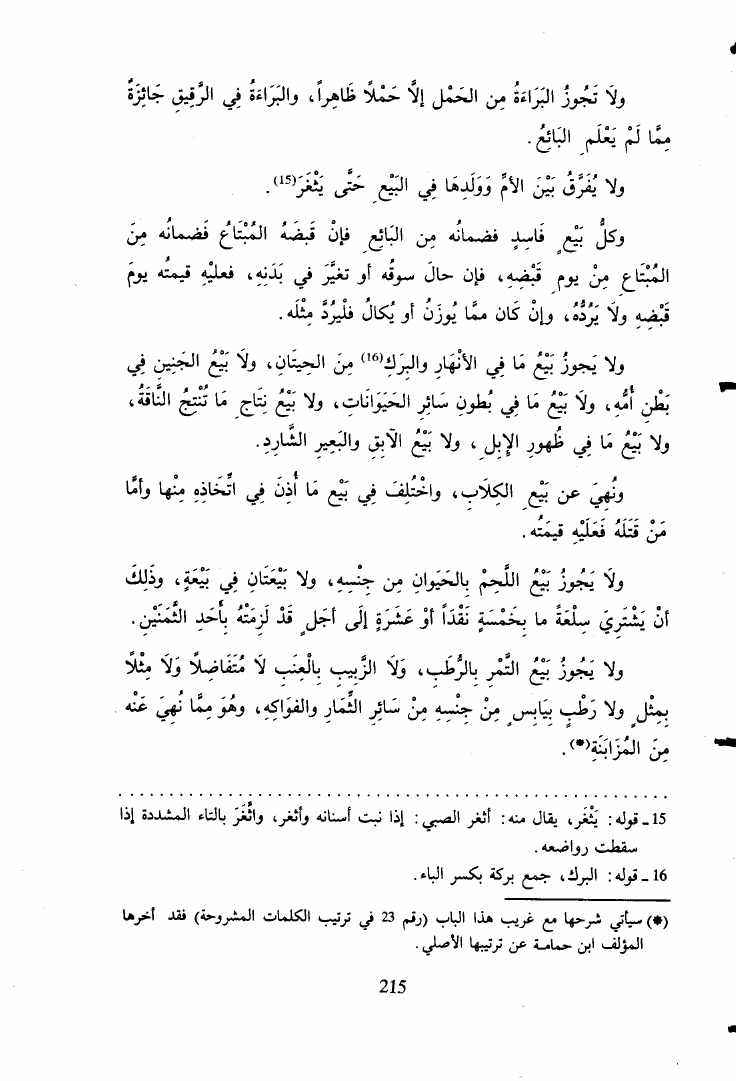 ولاَ تَجُوزُ البَرَاءَةُ مِن الحَمْل إلاَّ حَمْلاً ظَاهِراً، والبَرَاءَةُ فِي الرَّقيقِ جَائِزَةٌ
مِمَّا لَمْ يَعْلَمِ البَائِعُ.
ولا يُفَرَّقُ بَيْنَ الأمِّ وَوَلَدِهَا فِي البَيْعِ حَتَّى يَثْغَرَ(15).
وكلُّ بَيْعٍ فَاسِدٍ فضمانُه مِن البَائِعِ فإنْ قَبَضَهُ المُبْتَاعُ فَضمانُه مِنَ
المُبْتَاعِ مِنْ يومِ قَبْضِهِ، فإن حالَ سوقُه أو تغيَّرَ في بَدَنِهِ، فعليْهِ قيمتُه يومَ
قَبْضِهِ ولاَ يَرُدُّهُ، وإنْ كان ممَّا يُوزَنُ أو يُكالُ فلْيَرُدَّ مِثْلَه.
ولا يَجوزُ بَيْعُ مَا في الأنْهَارِ والبِرَكِ(16) مِنَ الحيتَانِ، ولاَ بَيْعُ الجَنِينِ فِي
بَطْنِ أُمِّهِ، ولاَ بَيْعُ مَا فِي بُطونِ سَائِرِ الحَيَوَانَاتِ، ولا بَيْعُ نِتَاجِ مَا تُنْتِجُ النَّاقَةُ،
ولا بَيْعُ مَا فِي ظُهورِ الإبلِ، ولا بَيْعُ الآبِقِ والبَعِيرِ الشَّارِدِ.
ونُهِيَ عن بَيْعِ الكِلاَبِ، واخْتُلِفَ فِي بَيْع مَا أُذِنَ فِي اتِّخَاذِهِ مِنْها وأمَّا
مَنْ قَتَلَهُ فَعَلَيْهِ قيمَتُه.
ولاَ يَجُوزُ بَيْعُ اللَّحِمْ بِالحَيَوانِ مِن جِنْسِهِ، ولا بَيْعَتَانِ فِي بَيْعَةٍ، وذَلِكَ
أنْ يَشْتَرِيَ سِلْعَةً ما بِخَمْسَةٍ نَقْدَاً أوْ عَشَرَةٍ إلَى أجَلٍ قَدْ لَزِمَتْهُ بِأَحَدِ الثَّمَنَيْنِ.
ولا يَجُوزُ بَيْعُ التَّمْرِ بالرُّطَبِ، وَلاَ الزَّبِيبِ بِالْعِنَبِ لاَ مُتَفَاضِلاً وَلاَ مِثْلاً
بِمِثْلٍ ولا رَطْبٍ بِيَابِسٍ مِنْ جِنْسِهِ مِنْ سَائِرِ الثِّمَارِ والفَوَاكِهِ، وهُوَ مِمَّا نُهِيَ عَنْه
مِنَ المُزَابَنَةِ(*).
15 ـ قوله: يَثْغَر، يقال منه: أثغر الصبي: إذا نبت أسنانه وأثغر، واثَّغَرَ بالتاء المشددة إذا
سقطت رواضعه.
16 ـ قوله: البرك، جمع بركة بكسر الباء.
(*) سيأتي شرحها مع غريب هذا الباب (رقم 23 في ترتيب الكلمات المشروحة) فقد أخرها
المؤلف ابن حمامة عن ترتيبها الأصلي.
215